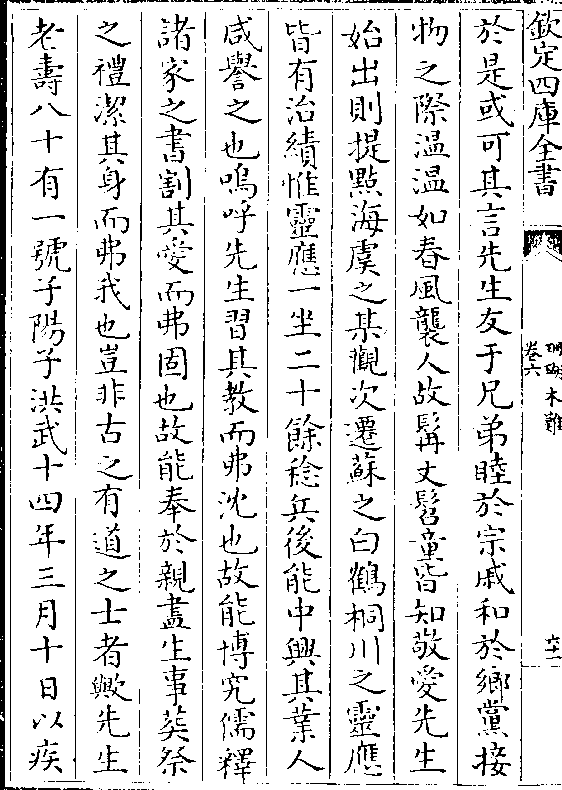 欽定四庫全書
珊瑚木難
卷六
六十一
於是或可其言先生友于兄弟睦於宗戚和於鄉黨接
物之際温温如春風襲人故髯丈髫童皆知敬愛先生
始出則提㸃海虞之某觀次遷蘇之白鶴桐川之靈應
皆有治績惟靈應一坐二十餘稔兵後能中興其業人
咸譽之也嗚呼先生習其教而弗沈也故能博究儒釋
諸家之書割其愛而弗固也故能奉於親盡生事葬祭
之禮潔其身而弗我也豈非古之有道之士者歟先生
老壽八十有一號子陽子洪武十四年三月十日以疾